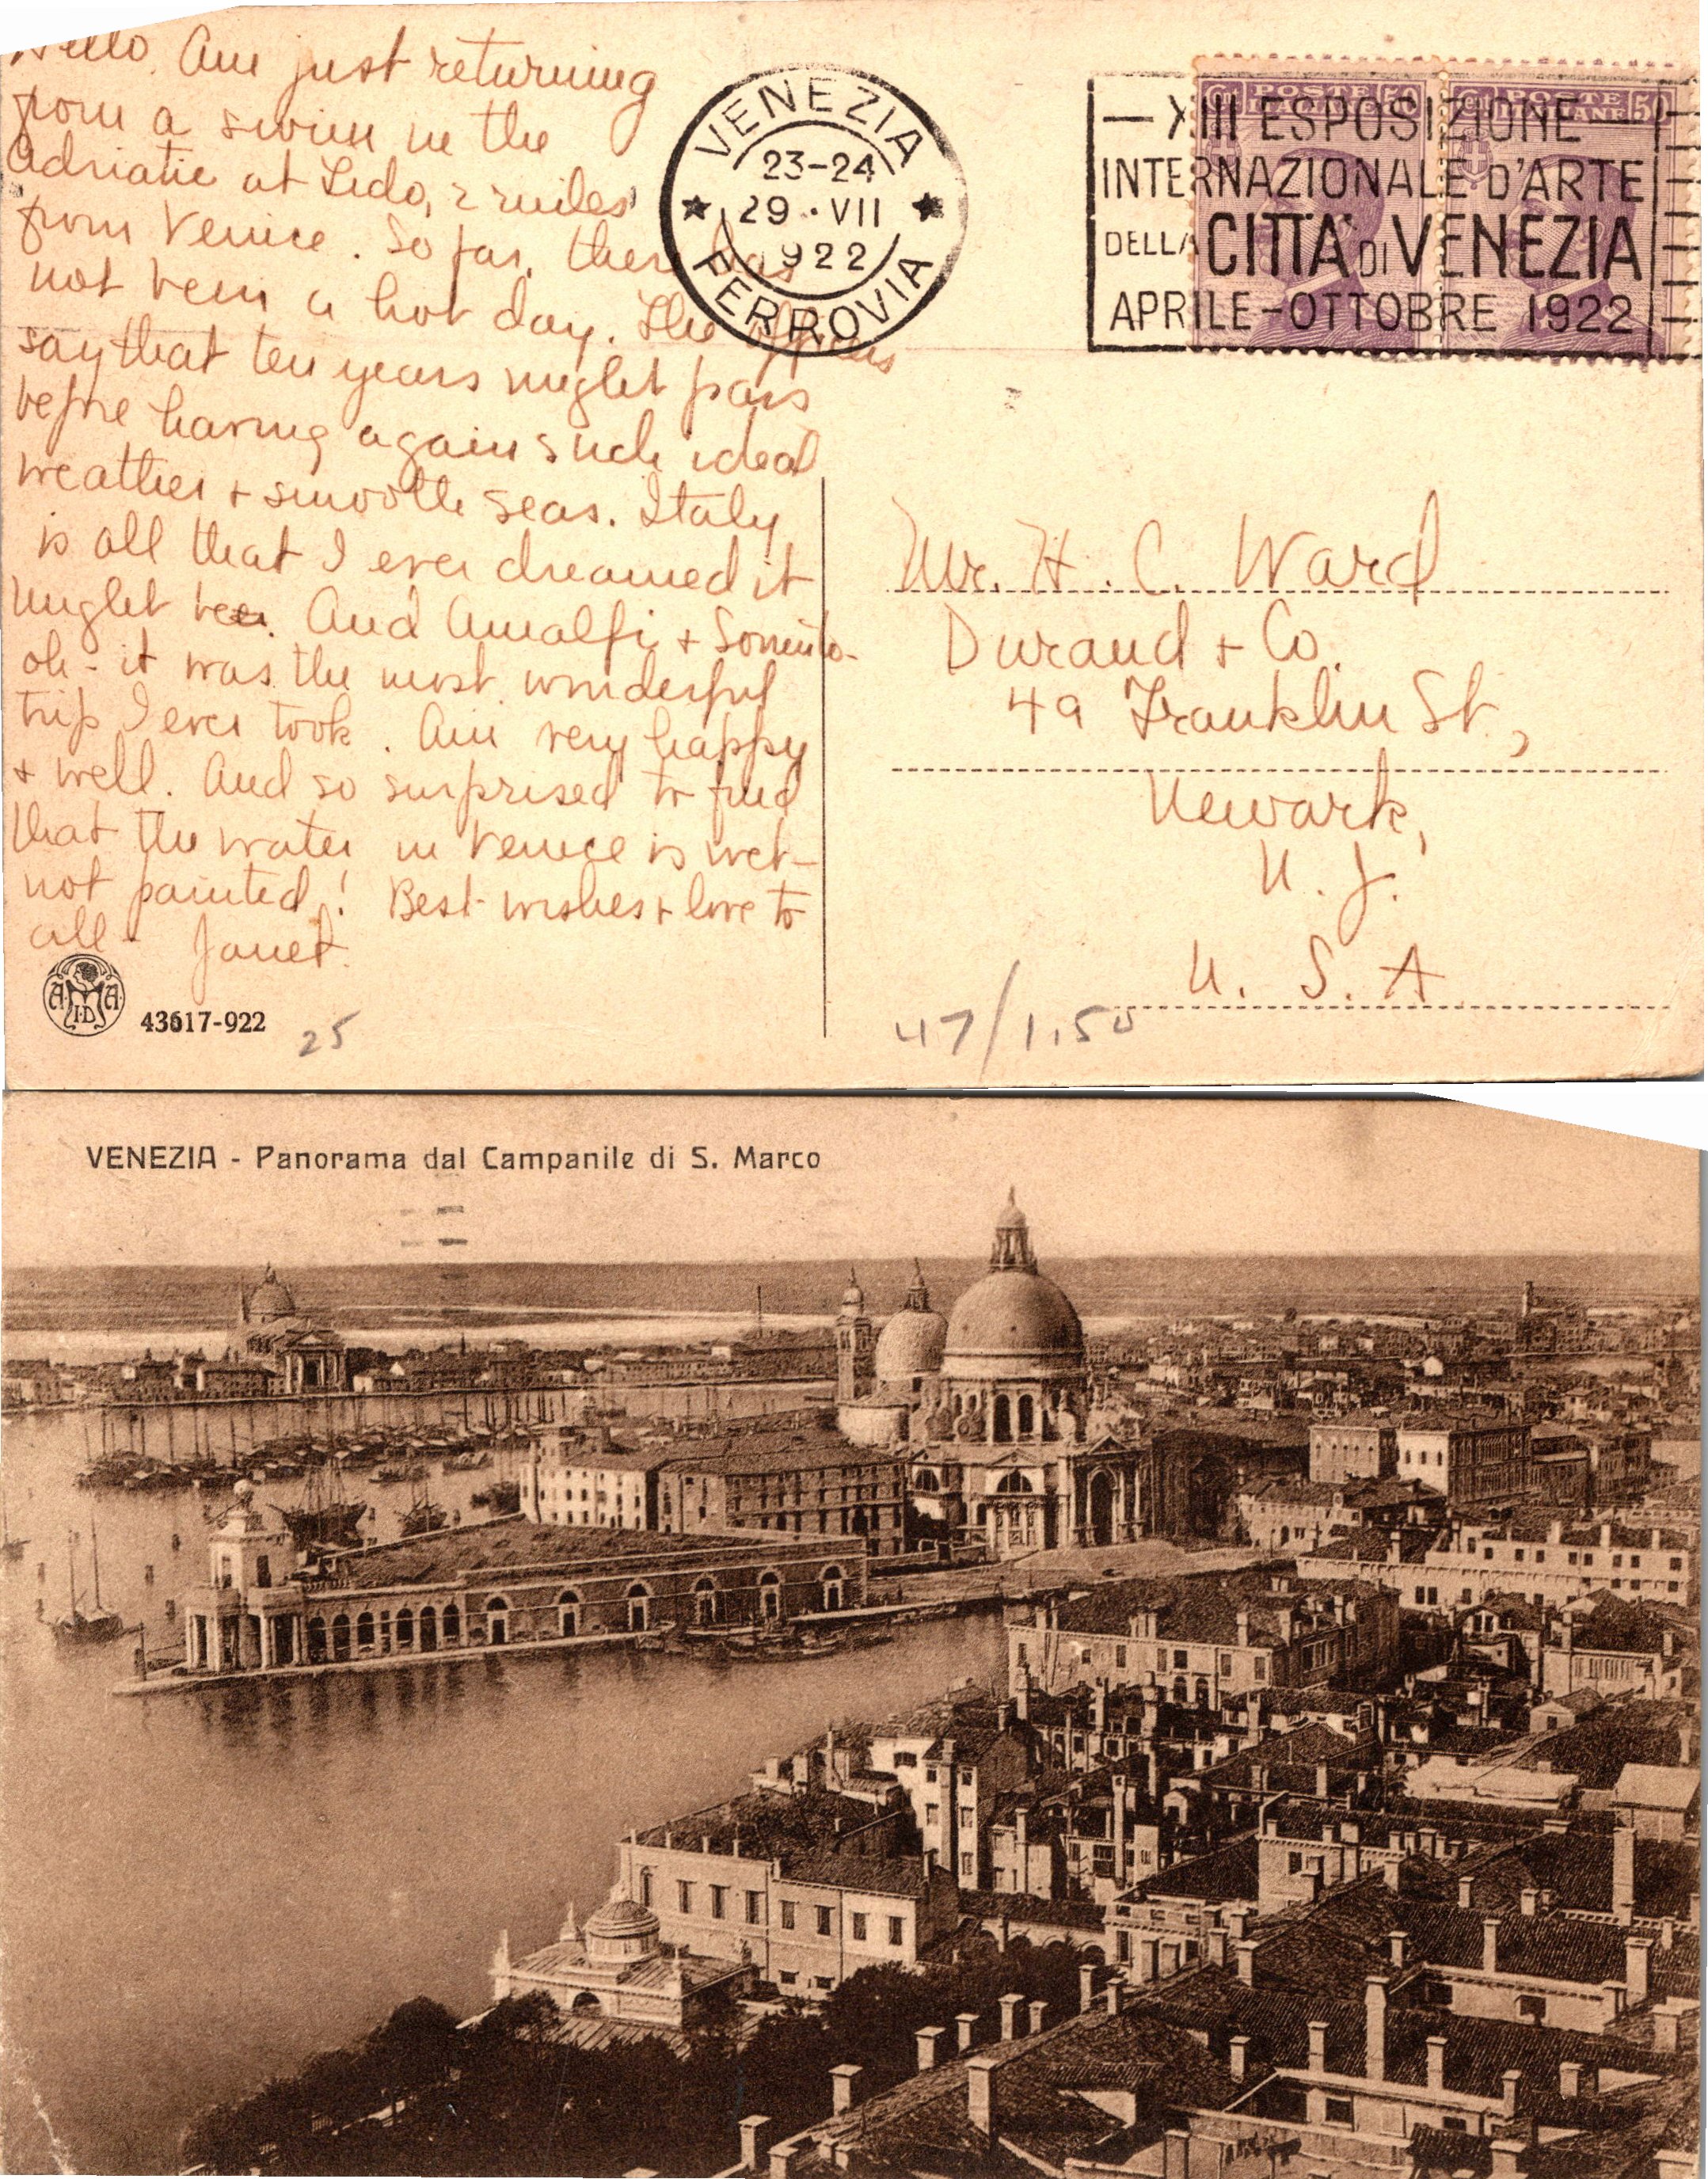 Hello. Am just returning
from a swim in the
Adriatic at Lido, 2 miles
from Venice. So far, there has
not been a hot day. The officers
say that ten years might pass
before having again such ideal
weather + smooth seas. Italy
is all that I ever dreamed it
might be. And Amalfi + Sorrento-
oh - it was the most wonderful
trip I ever took. Am very happy
+ well. And so surprised to find
that the water in Venice is wet-
not painted! Best wishes + love to
all - Janet.
A.M.A
I.D
43617-922
25
VENEZIA
23-24
29.VII
1922
FERROVIA
POSTE ITALIANE 50
POSTE ITALIANE 50
— XIII ESPOSIZIONE
INTERNAZIONALE D'ARTE
DELLA CITTA DI VENEZIA
APRILE-OTTOBRE 1922
Mr. H. C. Ward
Durand + Co.
49 Franklin St.,
Newark,
N. J.
U. S. A
47/1.50
VENEZIA - Panorama dal Campanile di S. Marco